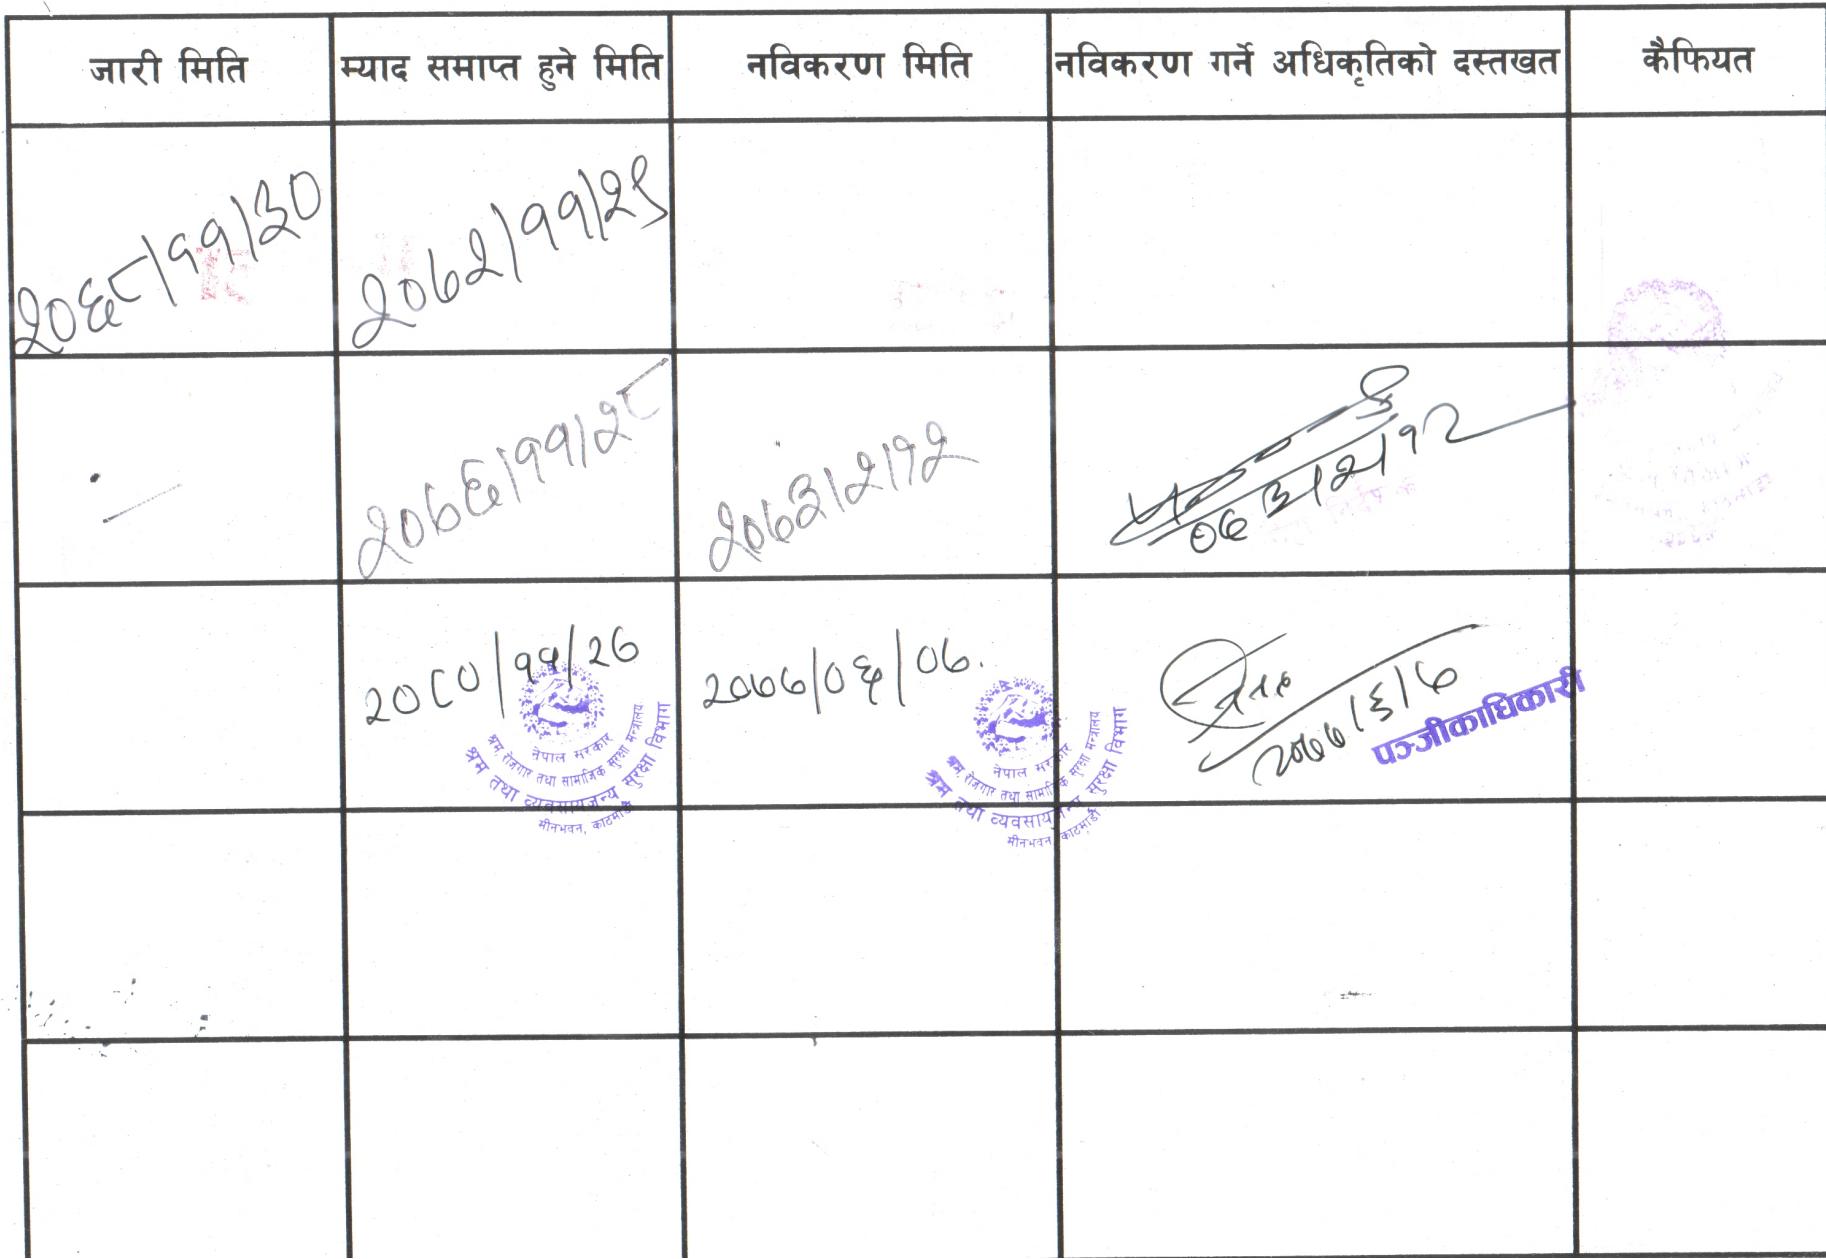 जारी मिति म्याद समाप्त हुने मिति नविकरण मिति नविकरण गर्ने अधिकृतिको दस्तखत कैफियत
२०६८/११/३० २०७२/११/२९
२०७६/११/२८ २०७३/२/१२
०७३/२/१२
२०८०/११/२७ २०७७/०६/०७.
२०७७/६/७
पञ्जीकाधिकारी
नेपाल सरकार
श्रम, रोजगार तथा सामाजिक सुरक्षा मन्त्रालय
श्रम तथा व्यवसायजन्य सुरक्षा विभाग
मीनभवन, काठमाडौं
नेपाल सरकार
श्रम, रोजगार तथा सामाजिक सुरक्षा मन्त्रालय
श्रम तथा व्यवसायजन्य सुरक्षा विभाग
मीनभवन, काठमाडौं